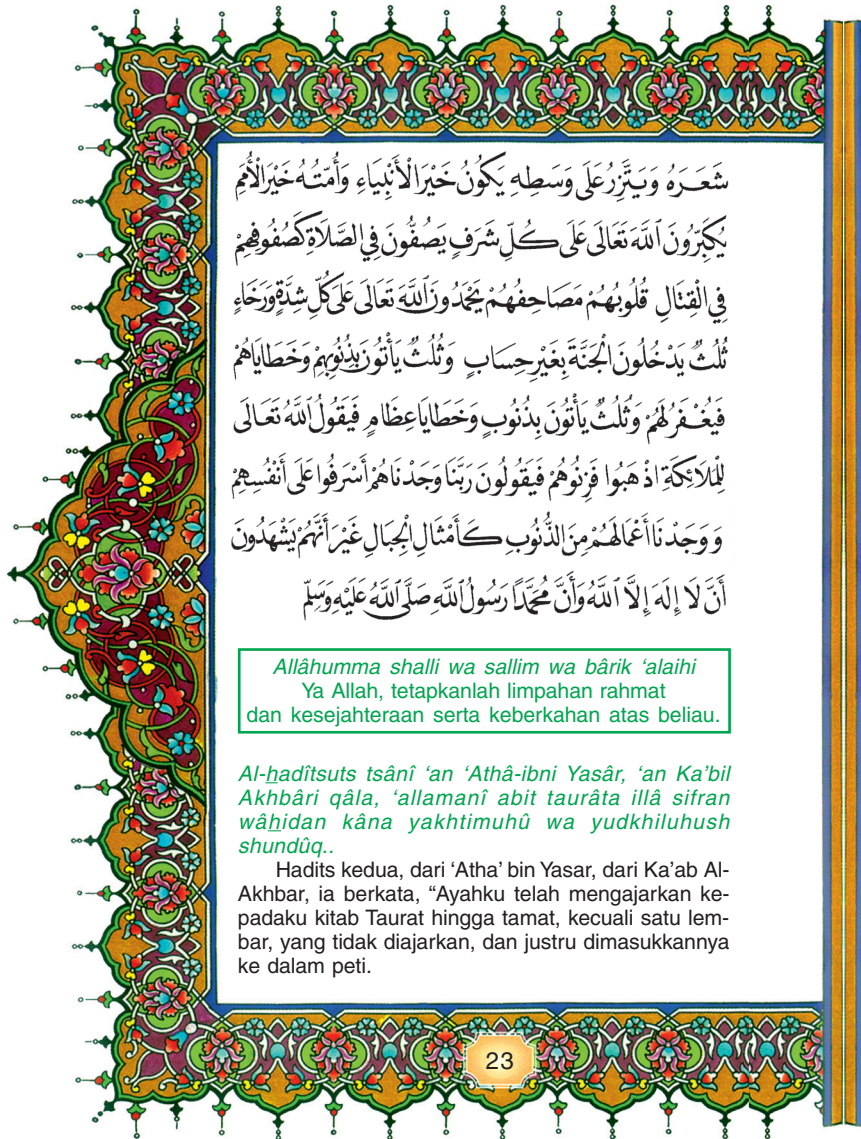 شَعَرَهُ وَيَتَّزِرُ عَلَى وَسَطِهِ يَكُونُ خَيْرَ الْأَنْبِيَاءِ وَأُمَّتُهُ خَيْرَ الْأُمَمِ
يُكَبِّرُونَ اللَّهَ تَعَالَى عَلَى كُلِّ شَرَفٍ يَصُفُّونَ فِي الصَّلَاةِ كَصُفُوفِهِمْ
فِي الْقِتَالِ قُلُوبُهُمْ مَصَاحِفُهُمْ يَحْمَدُونَ اللَّهَ تَعَالَى عَلَى كُلِّ شِدَّةٍ وَرَخَاءٍ
ثُلُثٌ يَدْخُلُونَ الْجَنَّةَ بِغَيْرِ حِسَابٍ وَثُلُثٌ يَأْتُونَ بِذُنُوبِهِمْ وَخَطَايَاهُمْ
فَيُغْفَرُ لَهُمْ وَثُلُثٌ يَأْتُونَ بِذُنُوبٍ وَخَطَايَا عِظَامٍ فَيَقُولُ اللَّهُ تَعَالَى
لِلْمَلَائِكَةِ اذْهَبُوا فَزِنُوهُمْ فَيَقُولُونَ رَبَّنَا وَجَدْنَاهُمْ أَسْرَفُوا عَلَى أَنْفُسِهِمْ
وَوَجَدْنَا أَعْمَالَهُمْ مِنَ الذُّنُوبِ كَأَمْثَالِ الْجِبَالِ غَيْرَ أَنَّهُمْ يَشْهَدُونَ
أَنْ لَا إِلَهَ إِلَّا اللَّهُ وَأَنَّ مُحَمَّدًا رَسُولُ اللَّهِ صَلَّى اللَّهُ عَلَيْهِ وَسَلَّمَ
Allâhumma shalli wa sallim wa bârik ‘alaihi
Ya Allah, tetapkanlah limpahan rahmat
dan kesejahteraan serta keberkahan atas beliau.
Al-hadîtsuts tsânî ‘an ‘Athâ-ibni Yasâr, ‘an Ka’bil
Akhbâri qâla, ‘allamanî abit taurâta illâ sifran
wâhidan kâna yakhtimuhû wa yudkhiluhush
shundûq..
Hadits kedua, dari ‘Atha’ bin Yasar, dari Ka’ab Al-
Akhbar, ia berkata, “Ayahku telah mengajarkan ke-
padaku kitab Taurat hingga tamat, kecuali satu lem-
bar, yang tidak diajarkan, dan justru dimasukkannya
ke dalam peti.
23